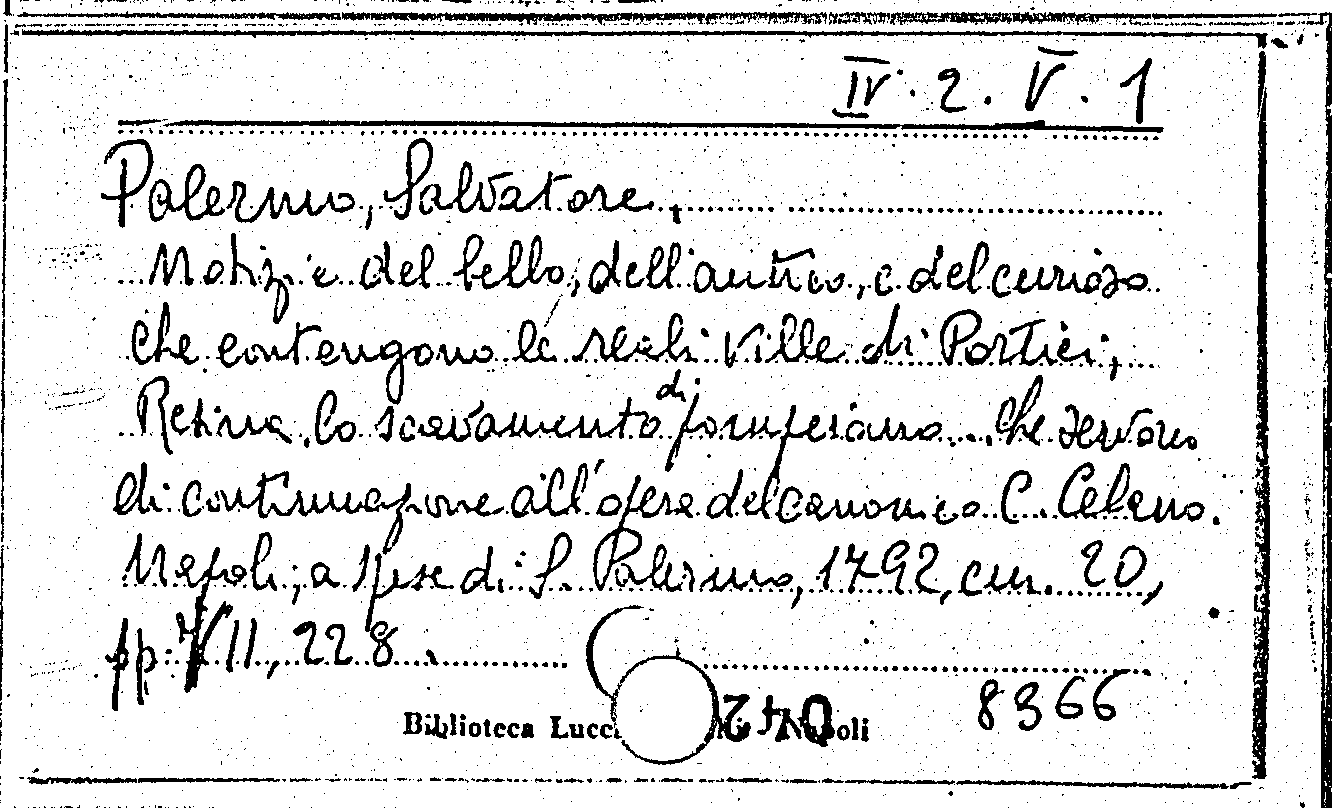 IV. 2. V. 1
Palermo, Salvatore,
Notizie del bello, dell'antico, e del curioso
che contengono le reali Ville di Portici,
Resina, lo scavamento di pompeiano... che servono
di continuazione all'opera del canonico C. Celano.
Napoli, a spese di S. Palermo, 1792, cm. 20,
pp. VII, 228.
8366
Biblioteca Napoli